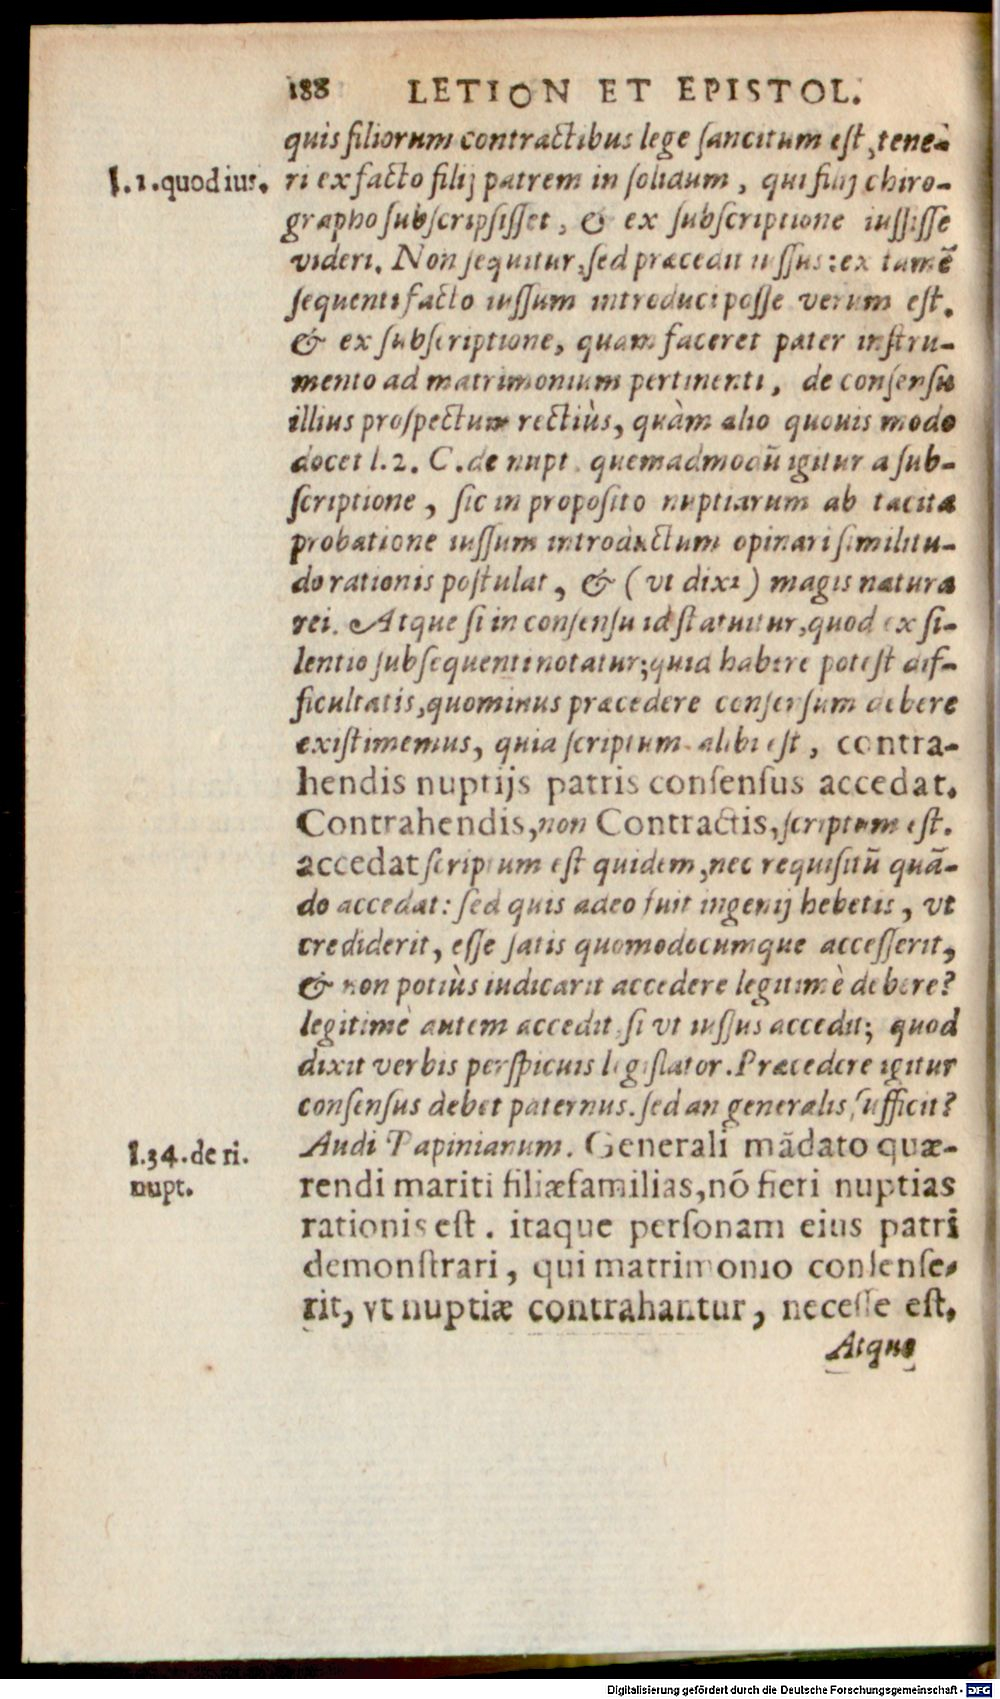 188 LETION ET EPISTOL.
quis filiorum contractibus lege sancitum est, tene-
l.1.quod ius. ri ex facto filij patrem in solidum, qui filij chiro-
grapho subscripsisset, & ex subscriptione iussisse
videri. Non sequitur, sed præcedit iussus: ex tamẽ
sequenti facto iussum introduci posse verum est.
& ex subscriptione, quam faceret pater instru-
mento ad matrimonium pertinenti, de consensu
illius prospectum rectiùs, quàm alio quouis modo
docet l.2. C. de nupt. quemadmodũ igitur a sub-
scriptione, sic in proposito nuptiarum ab tacita
probatione iussum introductum opinari similitu-
do rationis postulat, & (vt dixi) magis natura
rei. Atque si in consensu id statuitur, quod ex si-
lentio subsequenti notatur; quid habere potest dif-
ficultatis, quominus præcedere consensum debere
existimemus, quia scriptum alibi est, contra-
hendis nuptijs patris consensus accedat.
Contrahendis, non Contractis, scriptum est.
accedat scriptum est quidem, nec requisitũ quã-
do accedat: sed quis adeo fuit ingenij hebetis, vt
crediderit, esse satis quomodocumque accesserit,
& non potiùs iudicarit accedere legitimè debere?
legitimè autem accedit si vt iussus accedit; quod
dixit verbis perspicuis legislator. Præcedere igitur
consensus debet paternus. sed an generalis sufficit?
l.34. de ri. Audi Papinianum. Generali mãdato quæ-
nupt. rendi mariti filiæfamilias, nõ fieri nuptias
rationis est. itaque personam eius patri
demonstrari, qui matrimonio consense-
rit, vt nuptiæ contrahantur, necesse est.
Atque
Digitalisierung gefördert durch die Deutsche Forschungsgemeinschaft - DFG